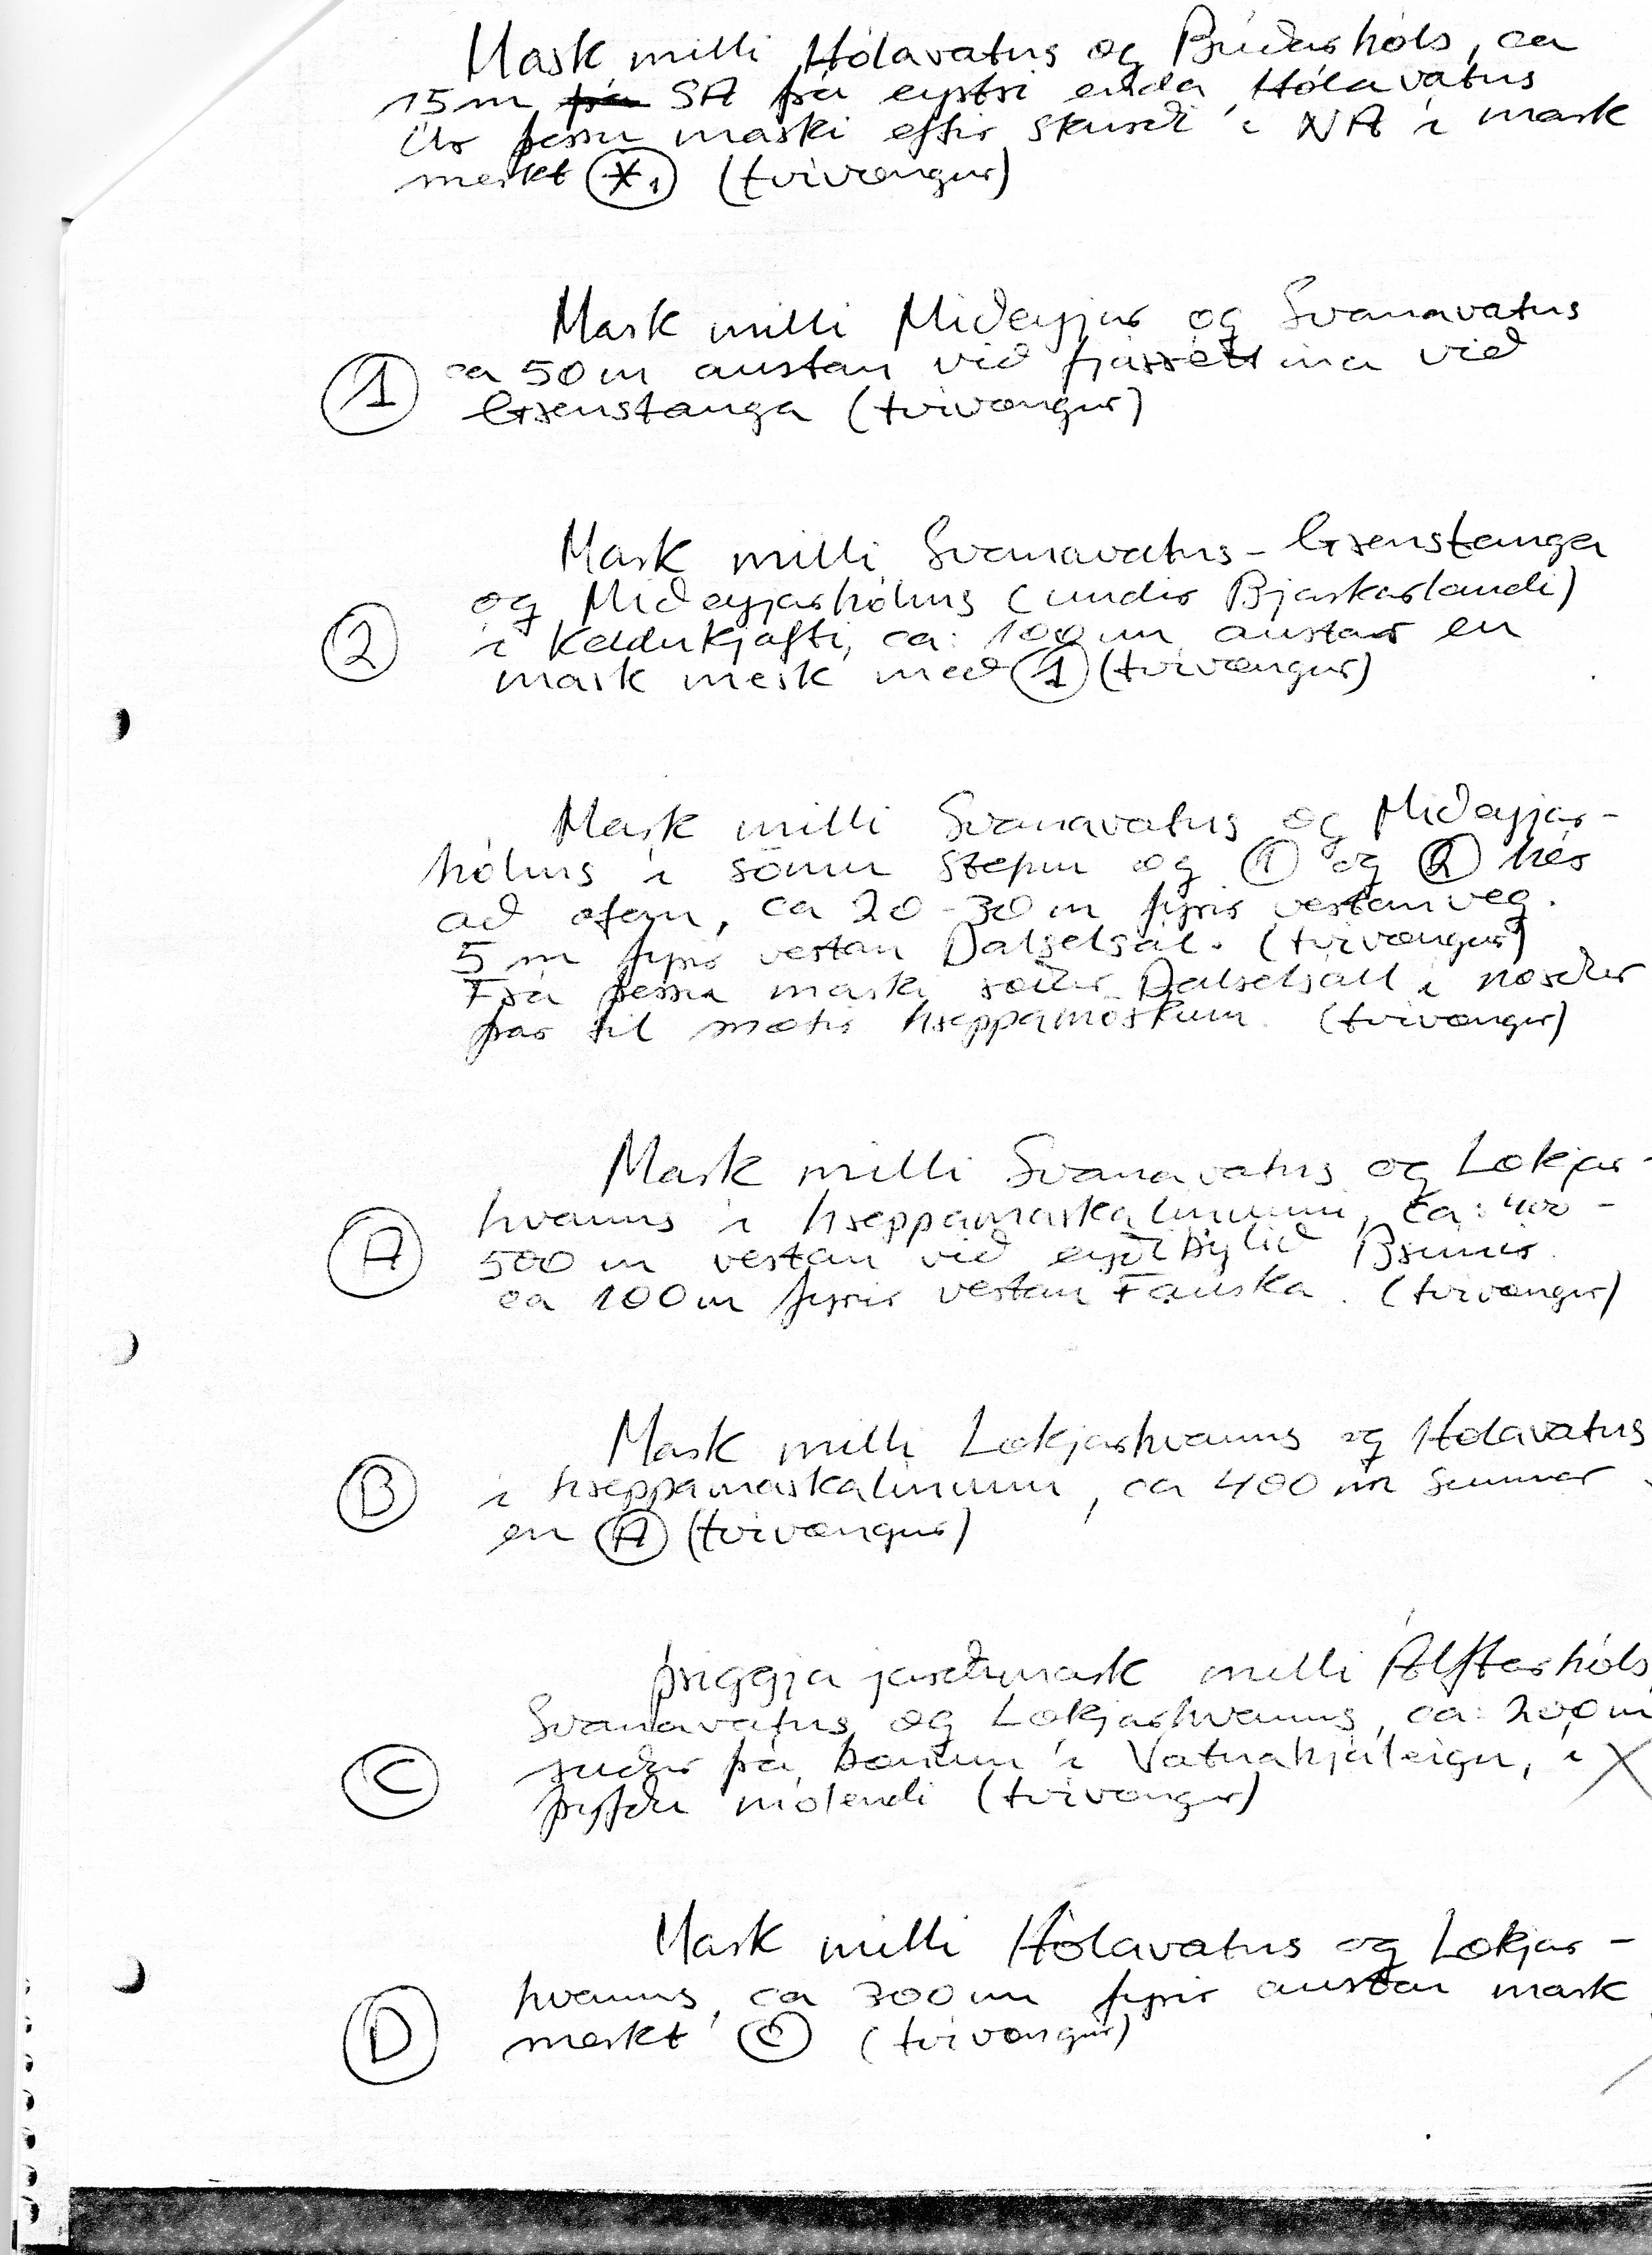 Mark milli Hólavatns og Búðarhóls, ca
15m frá SA frá eystri enda Hólavatns
Úr þessu marki eftir skurði í NA í mark
merkt *1 (tvívængur)
Mark milli Miðeyjar og Svanavatns
1 ca 50m austan við fjárréttina við
Grenstanga (tvívængur)
Mark milli Svanavatns - Grenstanga
og Miðeyjarhólms (undir Bjarkarlandi)
2 í Keldukjafti, ca: 100m austar en
mark merk með 1 (tvívængur)
Mark milli Svanavatns og Miðeyjar-
hólms í sömu stefnu og 1 og 2 hér
að ofan, ca 20-30m fyrir vestan veg.
5m fyrir vestan Dalselsál. (tvívængur)
Frá þessu marki ræður Dalselsáll í norður
þar til mætir hreppamörkum. (tvívængur)
Mark milli Svanavatns og Lækjar-
hvamms í hreppamarkalínunni, ca: 400-
A 500m vestan við eyðibýlið Brúnir.
ca 100m fyrir vestan Fauska. (tvívængur)
Mark milli Lækjarhvamms og Hólavatns
B í hreppamarkalínunni, ca 400m sunnar
en A (tvívængur)
Þriggja jarðamark milli Álftarhóls,
Svanavatns og Lækjarhvamms, ca: 200m
C suður frá bænum í Vatnahjáleigu, í
þýfðu mólendi (tvívængur)
Mark milli Hólavatns og Lækjar-
hvamms, ca 300m fyrir austan mark
D merkt C (tvívængur)